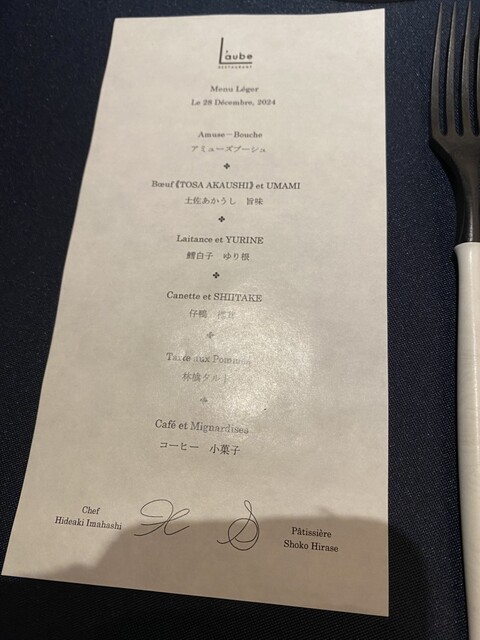 L'aube
RESTAURANT
Menu Léger
Le 28 Décembre, 2024
Amuse-Bouche
アミューズブーシュ
Bœuf《TOSA AKAUSHI》et UMAMI
土佐あかうし 旨味
Laitance et YURINE
鱈白子 ゆり根
Canette et SHIITAKE
仔鴨 椎茸
Tarte aux Pommes
林檎タルト
Café et Mignardises
コーヒー 小菓子
Chef
Hideaki Imahashi
Pâtissière
Shoko Hirase